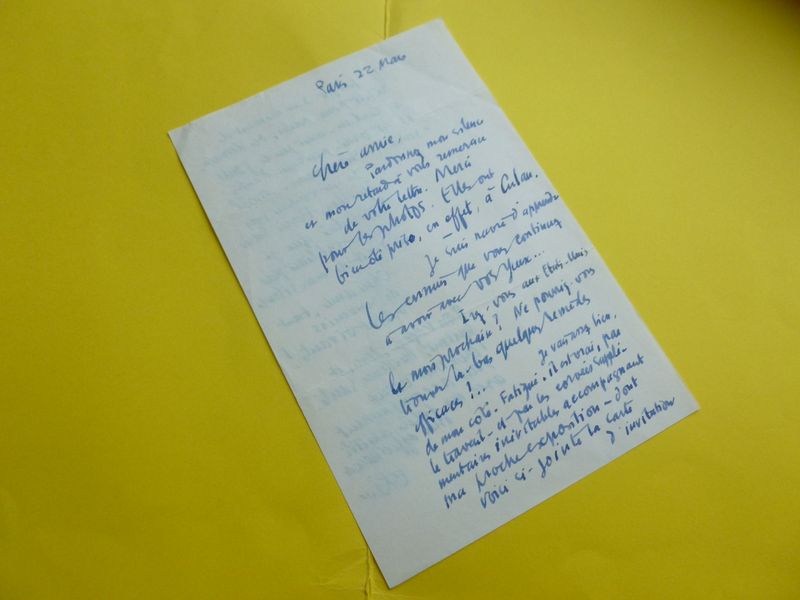 Paris 22 Mars
Chère amie,
Pardonnez mon silence
et mon retard à vous remercier
de votre lettre. Merci
pour les photos. Elles ont
bien été prises, en effet, à Cuba.
Je suis navré d'apprendre
les ennuis que vous continuez
à avoir avec vos yeux...
Irez-vous aux Etats-Unis
le mois prochain? Ne pourriez-vous
trouver là-bas quelques remèdes
efficaces?... Je vais assez bien,
de mon côté. Fatigué, il est vrai, par
le travail - et par les corvées supplé-
mentaires inévitables accompagnant
ma proche exposition - dont
voici ci-jointe la carte
d'invitation